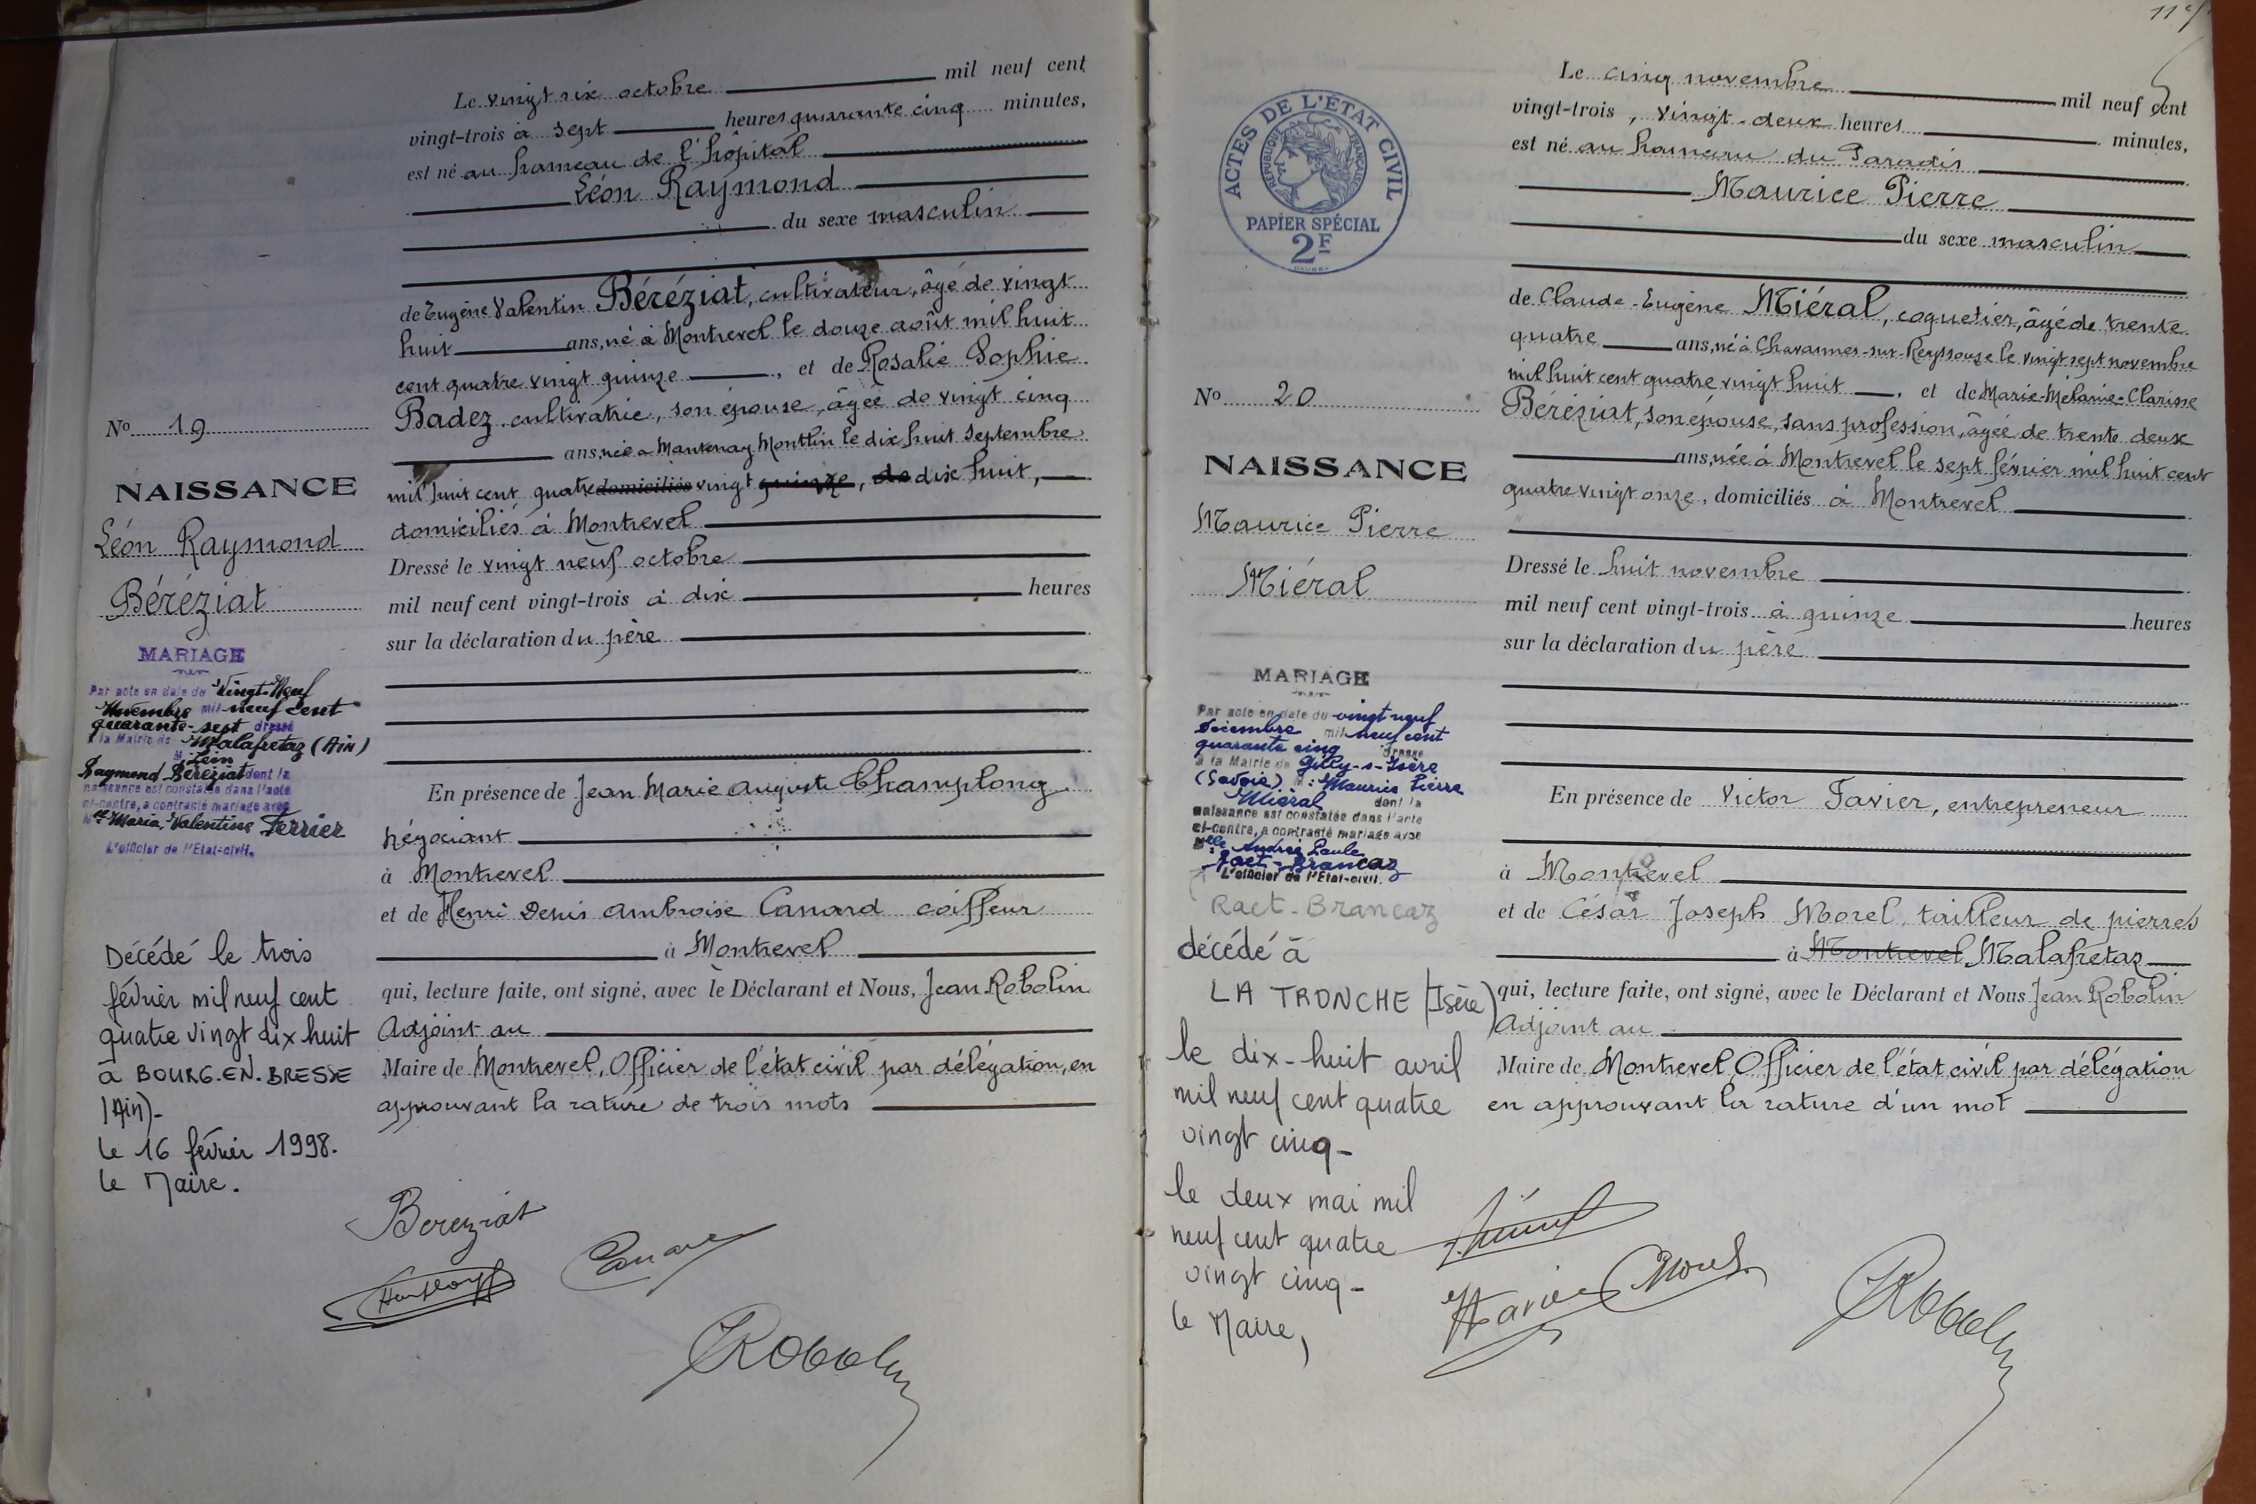 Le vingt six octobre mil neuf cent
vingt-trois à sept heures quarante cinq minutes,
est né au hameau de l'hôpital
Léon Raymond
du sexe masculin
de Eugène Valentin Béréziat, cultivateur, âgé de vingt
huit ans, né à Montrevel le douze août mil huit
cent quatre vingt quinze, et de Rosalie Sophie
Badez cultivatrie, son épouse, âgée de vingt cinq
ans, née à Mantenay Montlin le dix huit septembre
mil huit cent quatre domiciliés vingt quinze, de dix huit,
domiciliés à Montrevel
Dressé le vingt neuf octobre
mil neuf cent vingt-trois à dix heures
sur la déclaration du père
En présence de Jean Marie Auguste Champlong
négociant
à Montrevel
et de Henri Denis Ambroise Canard coiffeur
à Montrevel
qui, lecture faite, ont signé, avec le Déclarant et Nous, Jean Robolin
Adjoint au
Maire de Montrevel, Officier de l'état civil par délégation, en
approuvant la rature de trois mots
Béréziat
Canard
Robolin
No 19
NAISSANCE
Léon Raymond
Béréziat
MARIAGE
Par acte en date du Vingt-Neuf
Novembre mil neuf cent
quarante-sept dressé
à la Mairie de Malafretaz (Ain)
M Léon
Raymond Béréziat dont la
naissance est constatée dans l'acte
ci-contre, a contracté mariage avec
Mlle Maria, Valentine Ferrier
L'officier de l'Etat-civil.
Décédé le trois
février mil neuf cent
quatre vingt dix huit
à BOURG.EN.BRESSE
(Ain)-
le 16 février 1998.
le Maire.
ACTES DE L'ÉTAT CIVIL
RÉPUBLIQUE FRANÇAISE
PAPIER SPÉCIAL
2F
No 20
NAISSANCE
Maurice Pierre
Miéral
MARIAGE
Par acte en date du vingt neuf
Décembre mil neuf cent
quarante cinq dressé
à la Mairie de Gilly-s-Isère
(Savoie) M : Maurice Pierre
Miéral dont la
naissance est constatée dans l'acte
ci-contre, a contracté mariage avec
Mlle Andrée Paule
Ract-Brancaz
L'officier de l'Etat-civil.
Ract-Brancaz
décédé à
LA TRONCHE (Isère)
le dix-huit avril
mil neuf cent quatre
vingt cinq-
le deux mai mil
neuf cent quatre
vingt cinq-
le Maire,
Le cinq novembre mil neuf cent
vingt-trois, vingt-deux heures minutes,
est né au hameau du Paradis
Maurice Pierre
du sexe masculin
de Claude-Eugène Miéral, coquetier, âgé de trente
quatre ans, né à Chavannes-sur-Reyssouze le vingt sept novembre
mil huit cent quatre vingt huit, et de Marie-Mélanie-Clarisse
Béréziat, son épouse, sans profession, âgée de trente deux
ans, née à Montrevel le sept février mil huit cent
quatre vingt onze, domiciliés à Montrevel
Dressé le huit novembre
mil neuf cent vingt-trois à quinze heures
sur la déclaration du père
En présence de Victor Favier, entrepreneur
à Montrevel
et de César Joseph Morel, tailleur de pierres
à Montrevel Malafretaz
qui, lecture faite, ont signé, avec le Déclarant et Nous Jean Robolin
Adjoint au
Maire de Montrevel, Officier de l'état civil par délégation
en approuvant la rature d'un mot
Miéral
Favier Morel
Robolin